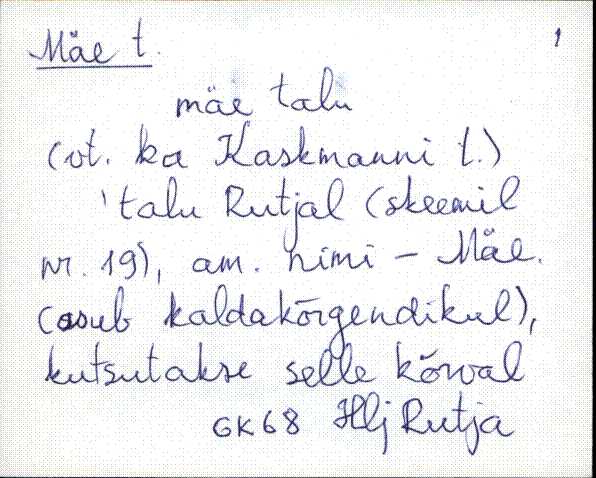 Mäe t. 1
mäe talu
(vt. ka Kaskmanni t.)
'talu Rutjal (skeemil
nr. 19), am. nimi – Mäe.
(asub kaldakõrgendikul),
kutsutakse selle kõrval
GK68 Hlj Rutja